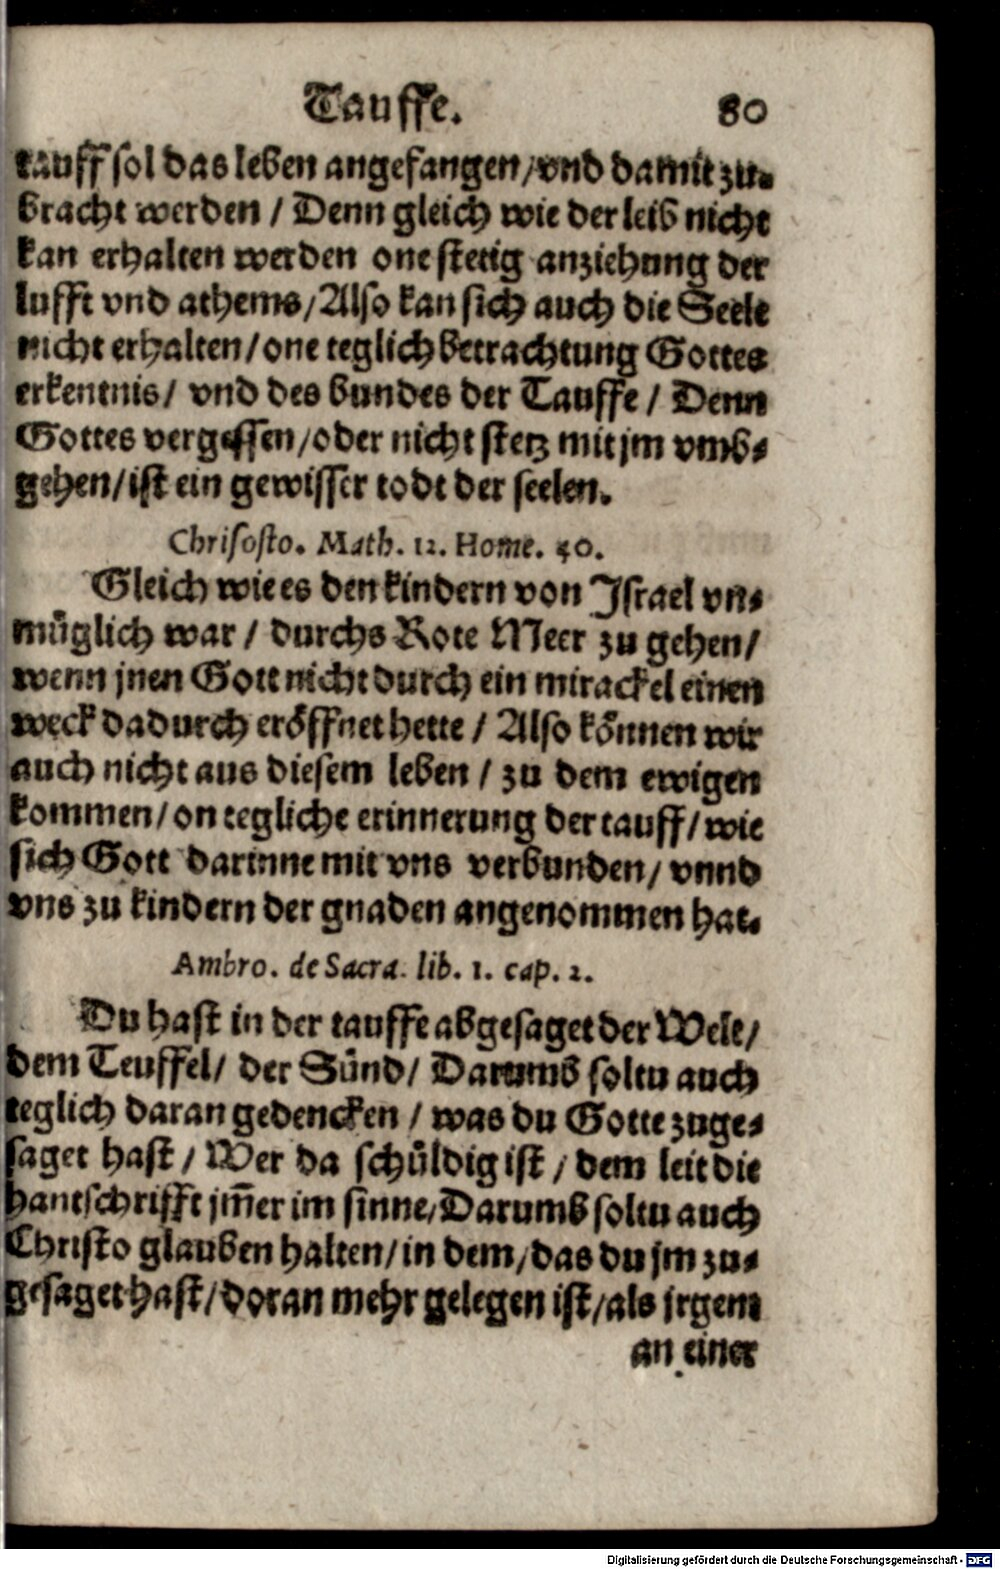 Tauffe. 80
tauff sol das leben angefangen/vnd damit zu-
bracht werden / Denn gleich wie der leib nicht
kan erhalten werden one stetig anziehung der
lufft vnd athems/Also kan sich auch die Seele
nicht erhalten/one teglich betrachtung Gottes
erkentnis/ vnd des bundes der Tauffe / Denn
Gottes vergessen/oder nicht stetz mit jm vmb-
gehen/ist ein gewisser todt der seelen.
Chrisosto. Math. 12. Home. 40.
Gleich wie es den kindern von Israel vn-
müglich war / durchs Rote Meer zu gehen/
wenn jnen Gott nicht durch ein mirackel einen
weck dadurch eröffnet hette / Also können wir
auch nicht aus diesem leben / zu dem ewigen
kommen/on tegliche erinnerung der tauff/wie
sich Gott darinne mit vns verbunden/ vnnd
vns zu kindern der gnaden angenommen hat.
Ambro. de Sacra. lib. 1. cap. 2.
Du hast in der tauffe abgesaget der Welt/
dem Teuffel/ der Sünd/ Darumb soltu auch
teglich daran gedencken / was du Gotte zuge-
saget hast / Wer da schüldig ist / dem leit die
hantschrifft jm̃er im sinne/Darumb soltu auch
Christo glauben halten/in dem/das du jm zu-
gesaget hast/doran mehr gelegen ist/als jrgent
an einer
Digitalisierung gefördert durch die Deutsche Forschungsgemeinschaft - DFG